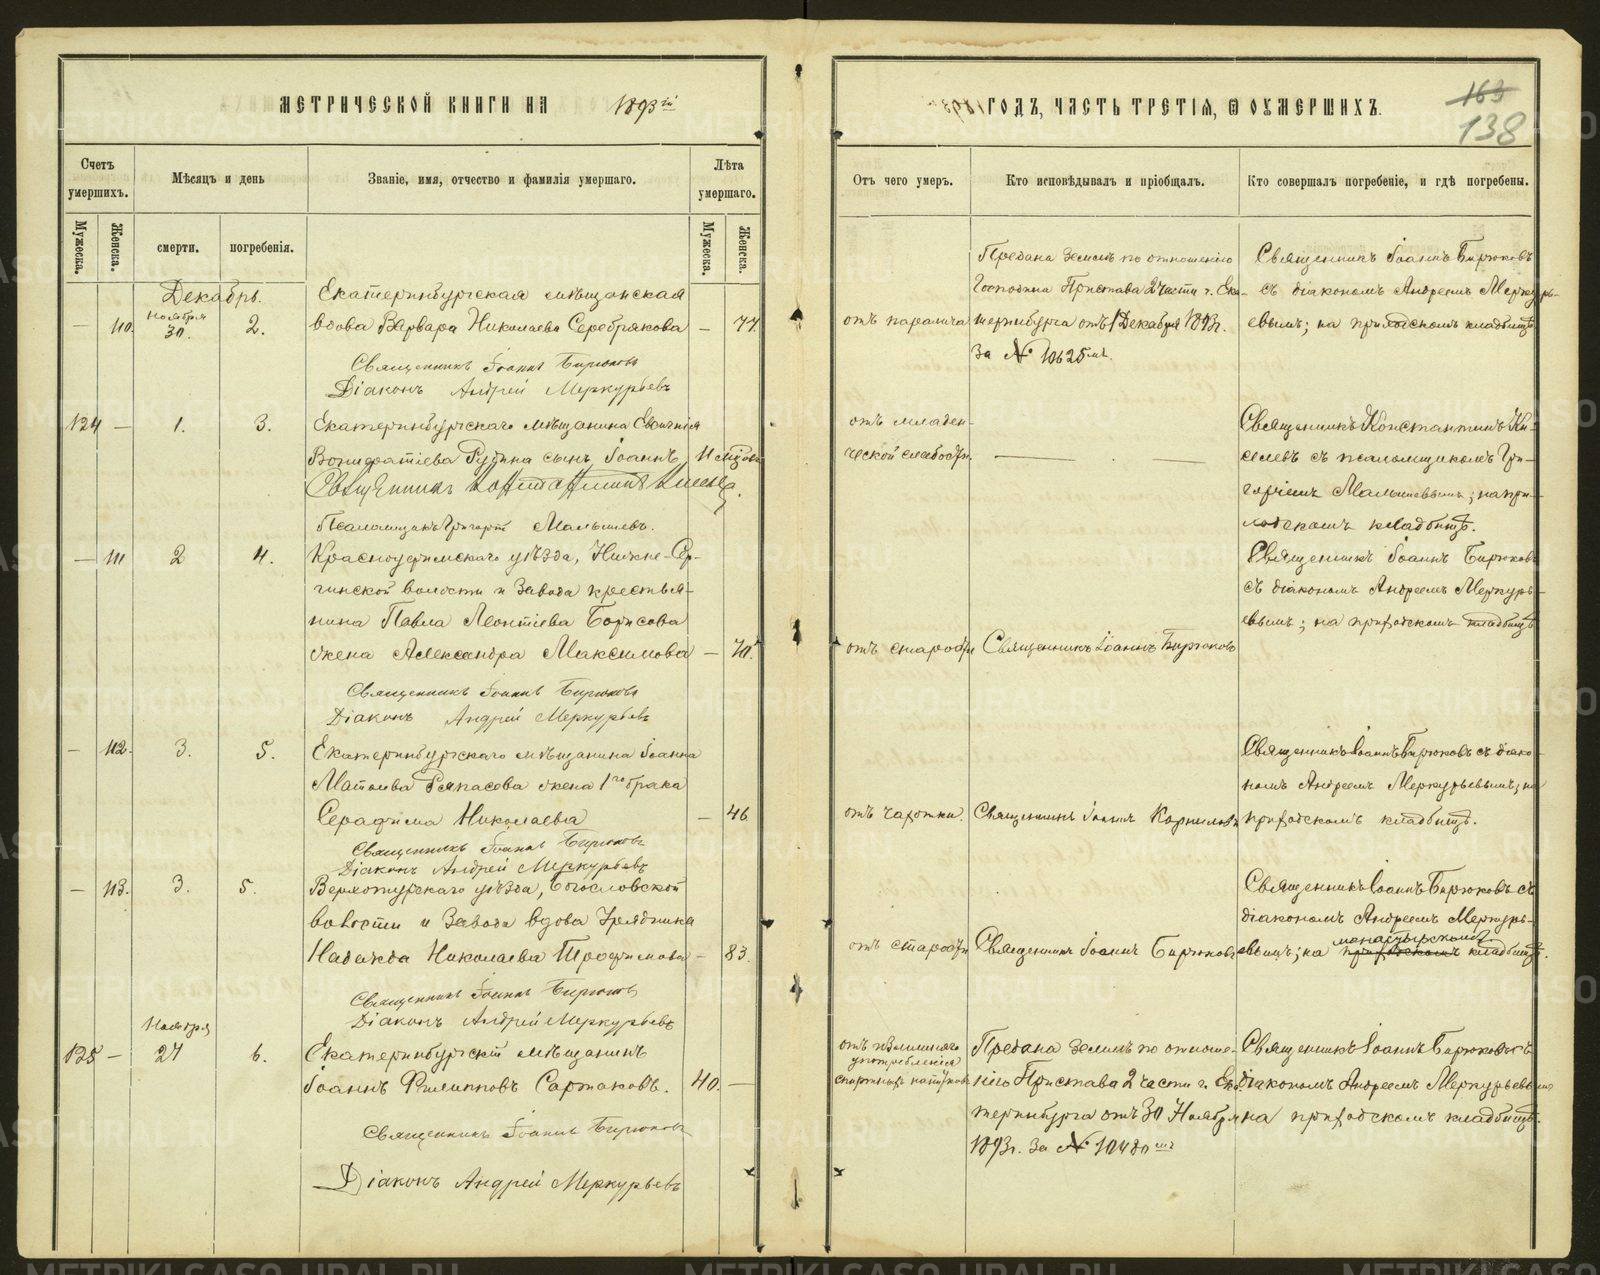 МЕТРИЧЕСКОЙ КНИГИ НА 1893й
ГОДЪ, ЧАСТЬ ТРЕТІЯ, Ѿ ОУМЕРШИХЪ.
163
138
Счетъ умершихъ.
Мѣсяцъ и день
Званіе, имя, отчество и фамилія умершаго.
Лѣта умершаго.
Отъ чего умеръ.
Кто исповѣдывалъ и пріобщалъ.
Кто совершалъ погребеніе, и гдѣ погребены.
Мужеска.
Женска.
смерти.
погребенія.
Мужеска.
Женска.
Декабрь.
Ноября
— 110. 30. 2.
Екатеринбургская мѣщанская
вдова Варвара Николаева Серебрякова — 77.
Священникъ Іоаннъ Бирюковъ
Діаконъ Андрей Меркурьевъ
отъ паралича
Предана землѣ по отношенію
Господина Пристава 2 части г. Ека-
теринбурга отъ 1 Декабря 1893г.
за № 10625мъ.
Священникъ Іоаннъ Бирюковъ
съ діакономъ Андреемъ Меркурь-
евымъ; на приходскомъ кладбищѣ
124 — 1. 3.
Екатеринбургскаго мѣщанина Евѳимія
Вонифатіева Рудина сынъ Іоаннъ
Священникъ Константинъ Киселевъ.
Псаломщикъ Григорій Малышевъ.
отъ младен-
ческой слабости.
Священникъ Константинъ Ки-
селевъ съ псаломщикомъ Гри-
горіемъ Малышевымъ; на при-
ходскомъ кладбищѣ.
— 111 2 4.
Красноуфимскаго уѣзда, Нижне-Сер-
гинской волости и завода крестья-
нина Павла Леонтіева Борисова
жена Александра Максимова — 70.
Священникъ Іоаннъ Бирюковъ
Діаконъ Андрей Меркурьевъ
отъ старости
Священникъ Іоаннъ Бирюковъ
Священникъ Іоаннъ Бирюковъ
съ діакономъ Андреемъ Меркурь-
евымъ; на приходскомъ кладбищѣ
— 112. 3. 5.
Екатеринбургскаго мѣщанина Іоанна
жена 1го брака
Серафима Николаева — 46
Священникъ Іоаннъ Бирюковъ
Діаконъ Андрей Меркурьевъ
отъ чахотки.
Священникъ Іоаннъ Корнильевъ
Священникъ Іоаннъ Бирюковъ съ діако-
номъ Андреемъ Меркурьевымъ; на
приходскомъ кладбищѣ.
— 113. 3. 5.
Верхотурскаго уѣзда, Богословской
волости и завода вдова Урядника
Надежда Николаева Трофимова — 83.
Священникъ Іоаннъ Бирюковъ
Діаконъ Андрей Меркурьевъ
отъ старости
Священникъ Іоаннъ Бирюковъ
Священникъ Іоаннъ Бирюковъ съ
діакономъ Андреемъ Меркурь-
монастырскомъ
евымъ; на приходскомъ кладбищѣ.
Ноября
125 — 27 6.
Екатеринбургскій мѣщанинъ
Іоаннъ Филипповъ Сартаковъ. 40. —
Священникъ Іоаннъ Бирюковъ
Діаконъ Андрей Меркурьевъ
отъ излишняго
употребленія
спиртныхъ напитковъ
Предана землѣ по отноше-
нію Пристава 2 части г. Ека-
теринбурга отъ 30 Ноября
1893г. за № 10480мъ
Священникъ Іоаннъ Бирюковъ съ
діакономъ Андреемъ Меркурьевымъ
на приходскомъ кладбищѣ.